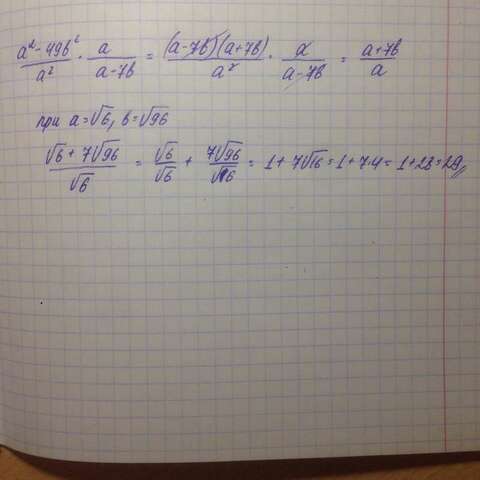 (a² - 49b²)/a² · a/(a-7b) = (a-7b)(a+7b)/a² · a/(a-7b) = (a+7b)/a
при a=√6, b=√96
(√6 + 7√96)/√6 = √6/√6 + 7√96/√6 = 1 + 7√16 = 1 + 7·4 = 1+28=29